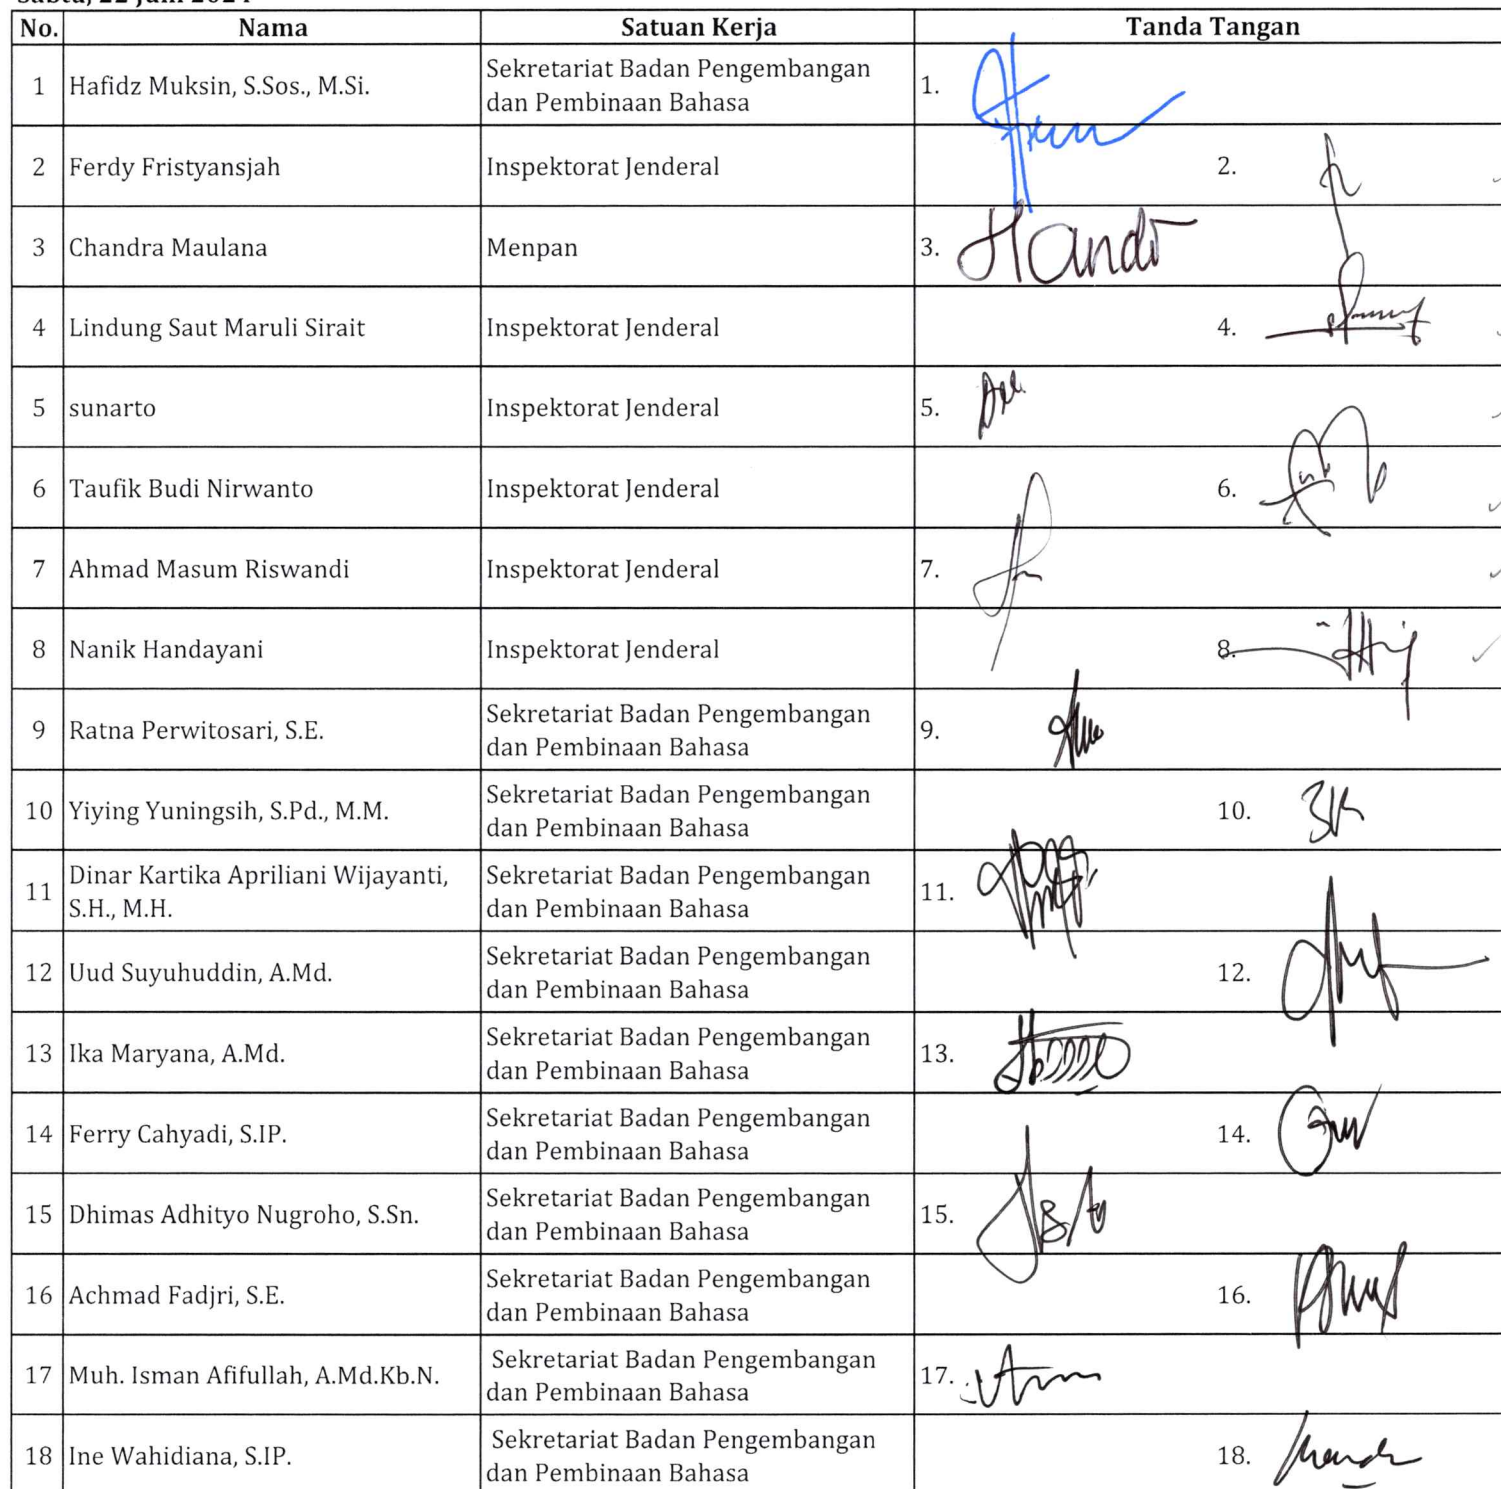 No. Nama Satuan Kerja Tanda Tangan
1 Hafidz Muksin, S.Sos., M.Si. Sekretariat Badan Pengembangan
dan Pembinaan Bahasa 1.
2 Ferdy Fristyansjah Inspektorat Jenderal 2.
3 Chandra Maulana Menpan 3.
4 Lindung Saut Maruli Sirait Inspektorat Jenderal 4.
5 sunarto Inspektorat Jenderal 5.
6 Taufik Budi Nirwanto Inspektorat Jenderal 6.
7 Ahmad Masum Riswandi Inspektorat Jenderal 7.
8 Nanik Handayani Inspektorat Jenderal 8.
9 Ratna Perwitosari, S.E. Sekretariat Badan Pengembangan
dan Pembinaan Bahasa 9.
10 Yiying Yuningsih, S.Pd., M.M. Sekretariat Badan Pengembangan
dan Pembinaan Bahasa 10.
11 Dinar Kartika Apriliani Wijayanti, Sekretariat Badan Pengembangan
S.H., M.H. dan Pembinaan Bahasa 11.
12 Uud Suyuhuddin, A.Md. Sekretariat Badan Pengembangan
dan Pembinaan Bahasa 12.
13 Ika Maryana, A.Md. Sekretariat Badan Pengembangan
dan Pembinaan Bahasa 13.
14 Ferry Cahyadi, S.IP. Sekretariat Badan Pengembangan
dan Pembinaan Bahasa 14.
15 Dhimas Adhityo Nugroho, S.Sn. Sekretariat Badan Pengembangan
dan Pembinaan Bahasa 15.
16 Achmad Fadjri, S.E. Sekretariat Badan Pengembangan
dan Pembinaan Bahasa 16.
17 Muh. Isman Afifullah, A.Md.Kb.N. Sekretariat Badan Pengembangan
dan Pembinaan Bahasa 17.
18 Ine Wahidiana, S.IP. Sekretariat Badan Pengembangan
dan Pembinaan Bahasa 18.